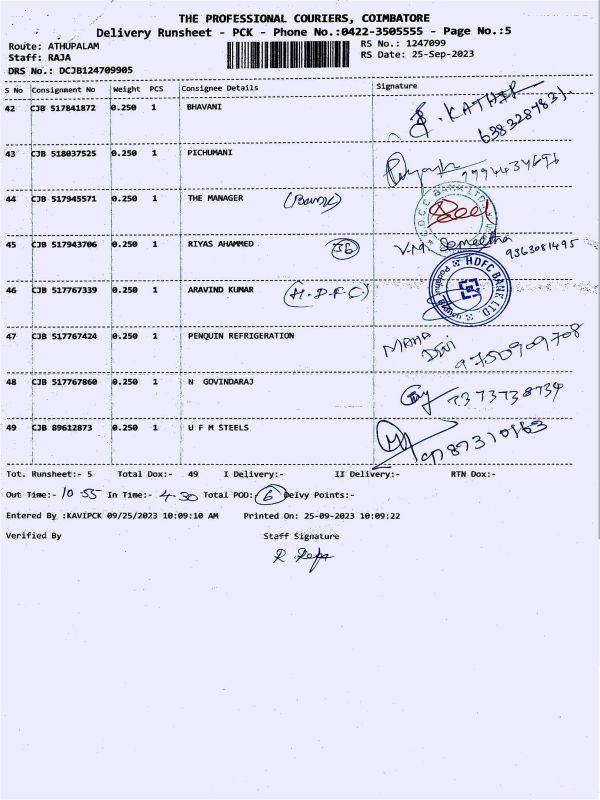 THE PROFESSIONAL COURIERS, COIMBATORE
Delivery Runsheet - PCK - Phone No.:0422-3505555 - Page No.:5
Route: ATHUPALAM RS No.: 1247099
Staff: RAJA RS Date: 25-Sep-2023
DRS No.: DCJB124709905
S No Consignment No Weight PCS Consignee Details Signature
42 CJB 517841872 0.250 1 BHAVANI KATHIR
43 CJB 518037525 0.250 1 PICHUMANI 9994434696
44 CJB 517945571 0.250 1 THE MANAGER (Bank)
45 CJB 517943706 0.250 1 RIYAS AHAMMED 36 9363081495
46 CJB 517767339 0.250 1 ARAVIND KUMAR (H.D.F.C) HDFC BANK LTD
47 CJB 517767424 0.250 1 PENQUIN REFRIGERATION MAHA DEVI 9750909708
48 CJB 517767860 0.250 1 N GOVINDARAJ 7373738734
49 CJB 89612873 0.250 1 U F M STEELS 9787310163
Tot. Runsheet:- 5 Total Dox:- 49 I Delivery:- II Delivery:- RTN Dox:-
Out Time:- 10 55 In Time:- 4-30 Total POD:- 6 Delvy Points:-
Entered By :KAVIPCK 09/25/2023 10:09:10 AM Printed On: 25-09-2023 10:09:22
Verified By Staff Signature